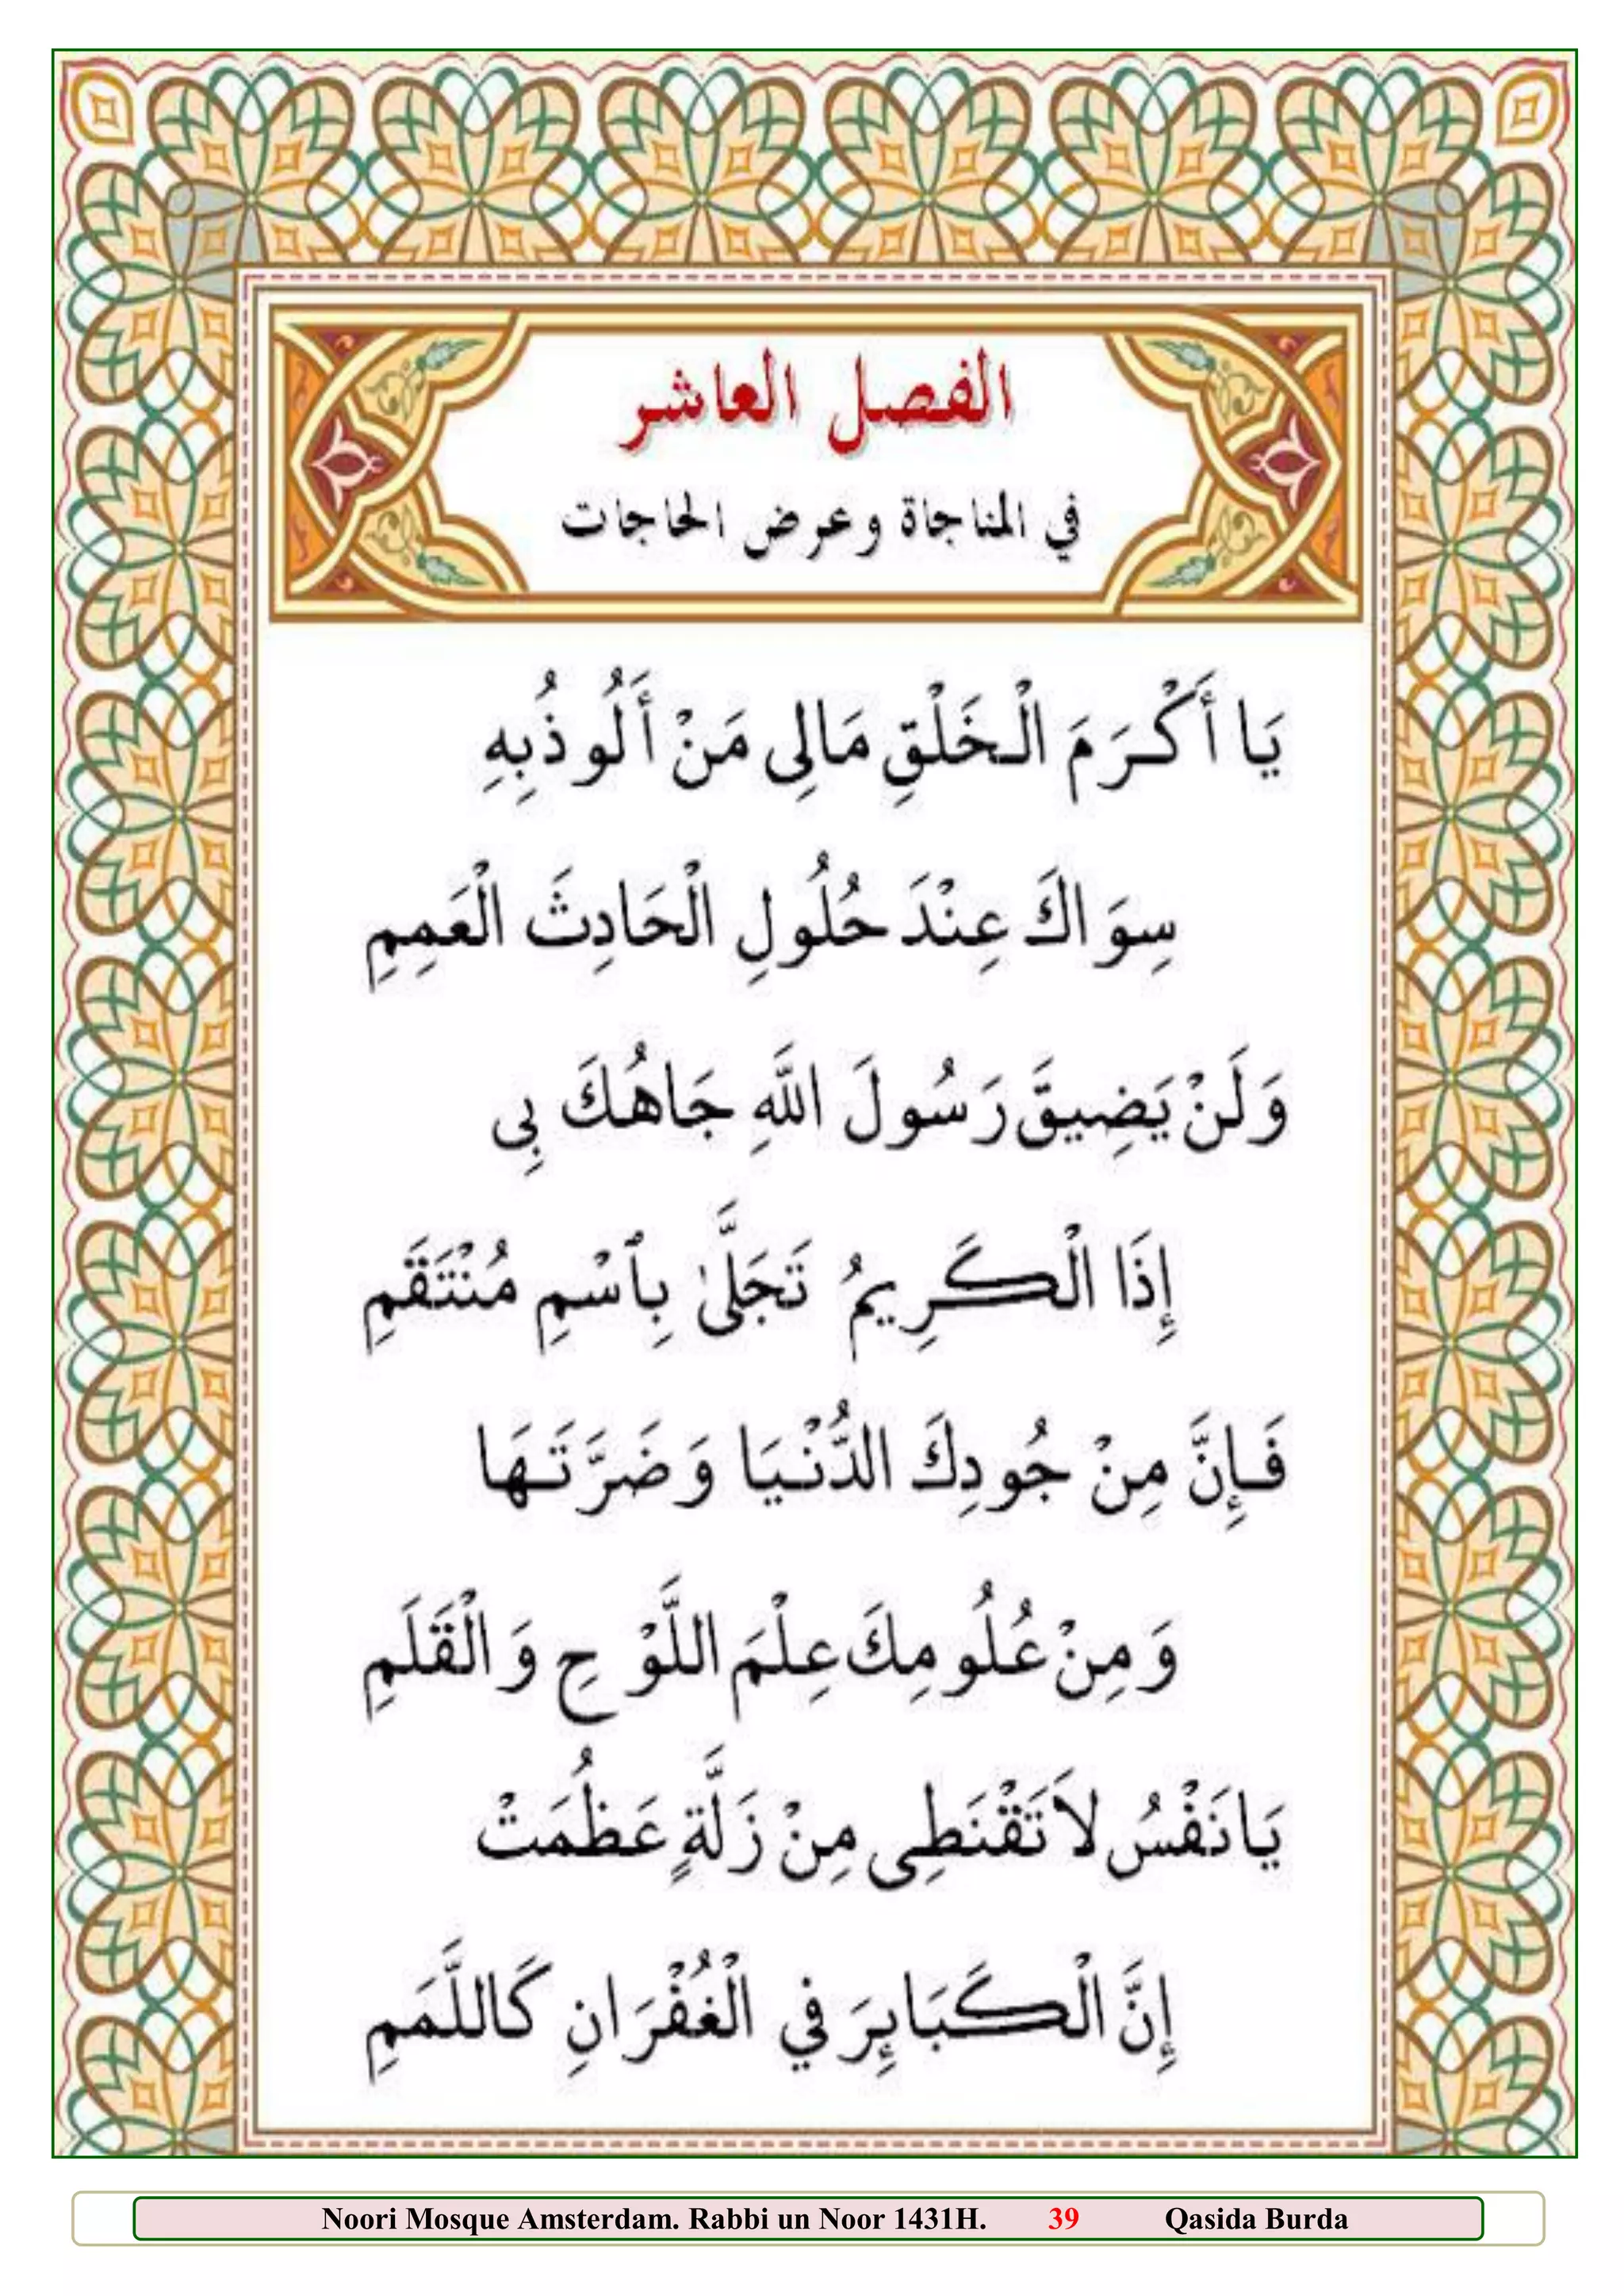 الفصل العاشر
في المناجاة وعرض الحاجات
يَا أَكْرَمَ الْخَلْقِ مَالِى مَنْ أَلُوذُ بِهِ
سِوَاكَ عِنْدَ حُلُولِ الْحَادِثَ الْعَمِمِ
وَلَنْ يَضِيقَّ رَسُولَ اللَّهِ جَاهُكَ بِى
إِذَا الْكَرِيمُ تَجَلَّىٰ بِٱسْمِ مُنْتَقَمِ
فَإِنَّ مِنْ جُودِكَ الدُّنْيَا وَضَرَّتَهَا
وَمِنْ عُلُومِكَ عِلْمَ اللَّوْحِ وَالْقَلَمِ
يَا نَفْسُ لاَ تَقْنَطِى مِنْ زَلَّةٍ عَظُمَتْ
إِنَّ الْكَبَايِٕرَ فِي الْغُفْرَانِ كَاللَّمَمِ
Noori Mosque Amsterdam. Rabbi un Noor 1431H. 39 Qasida Burda